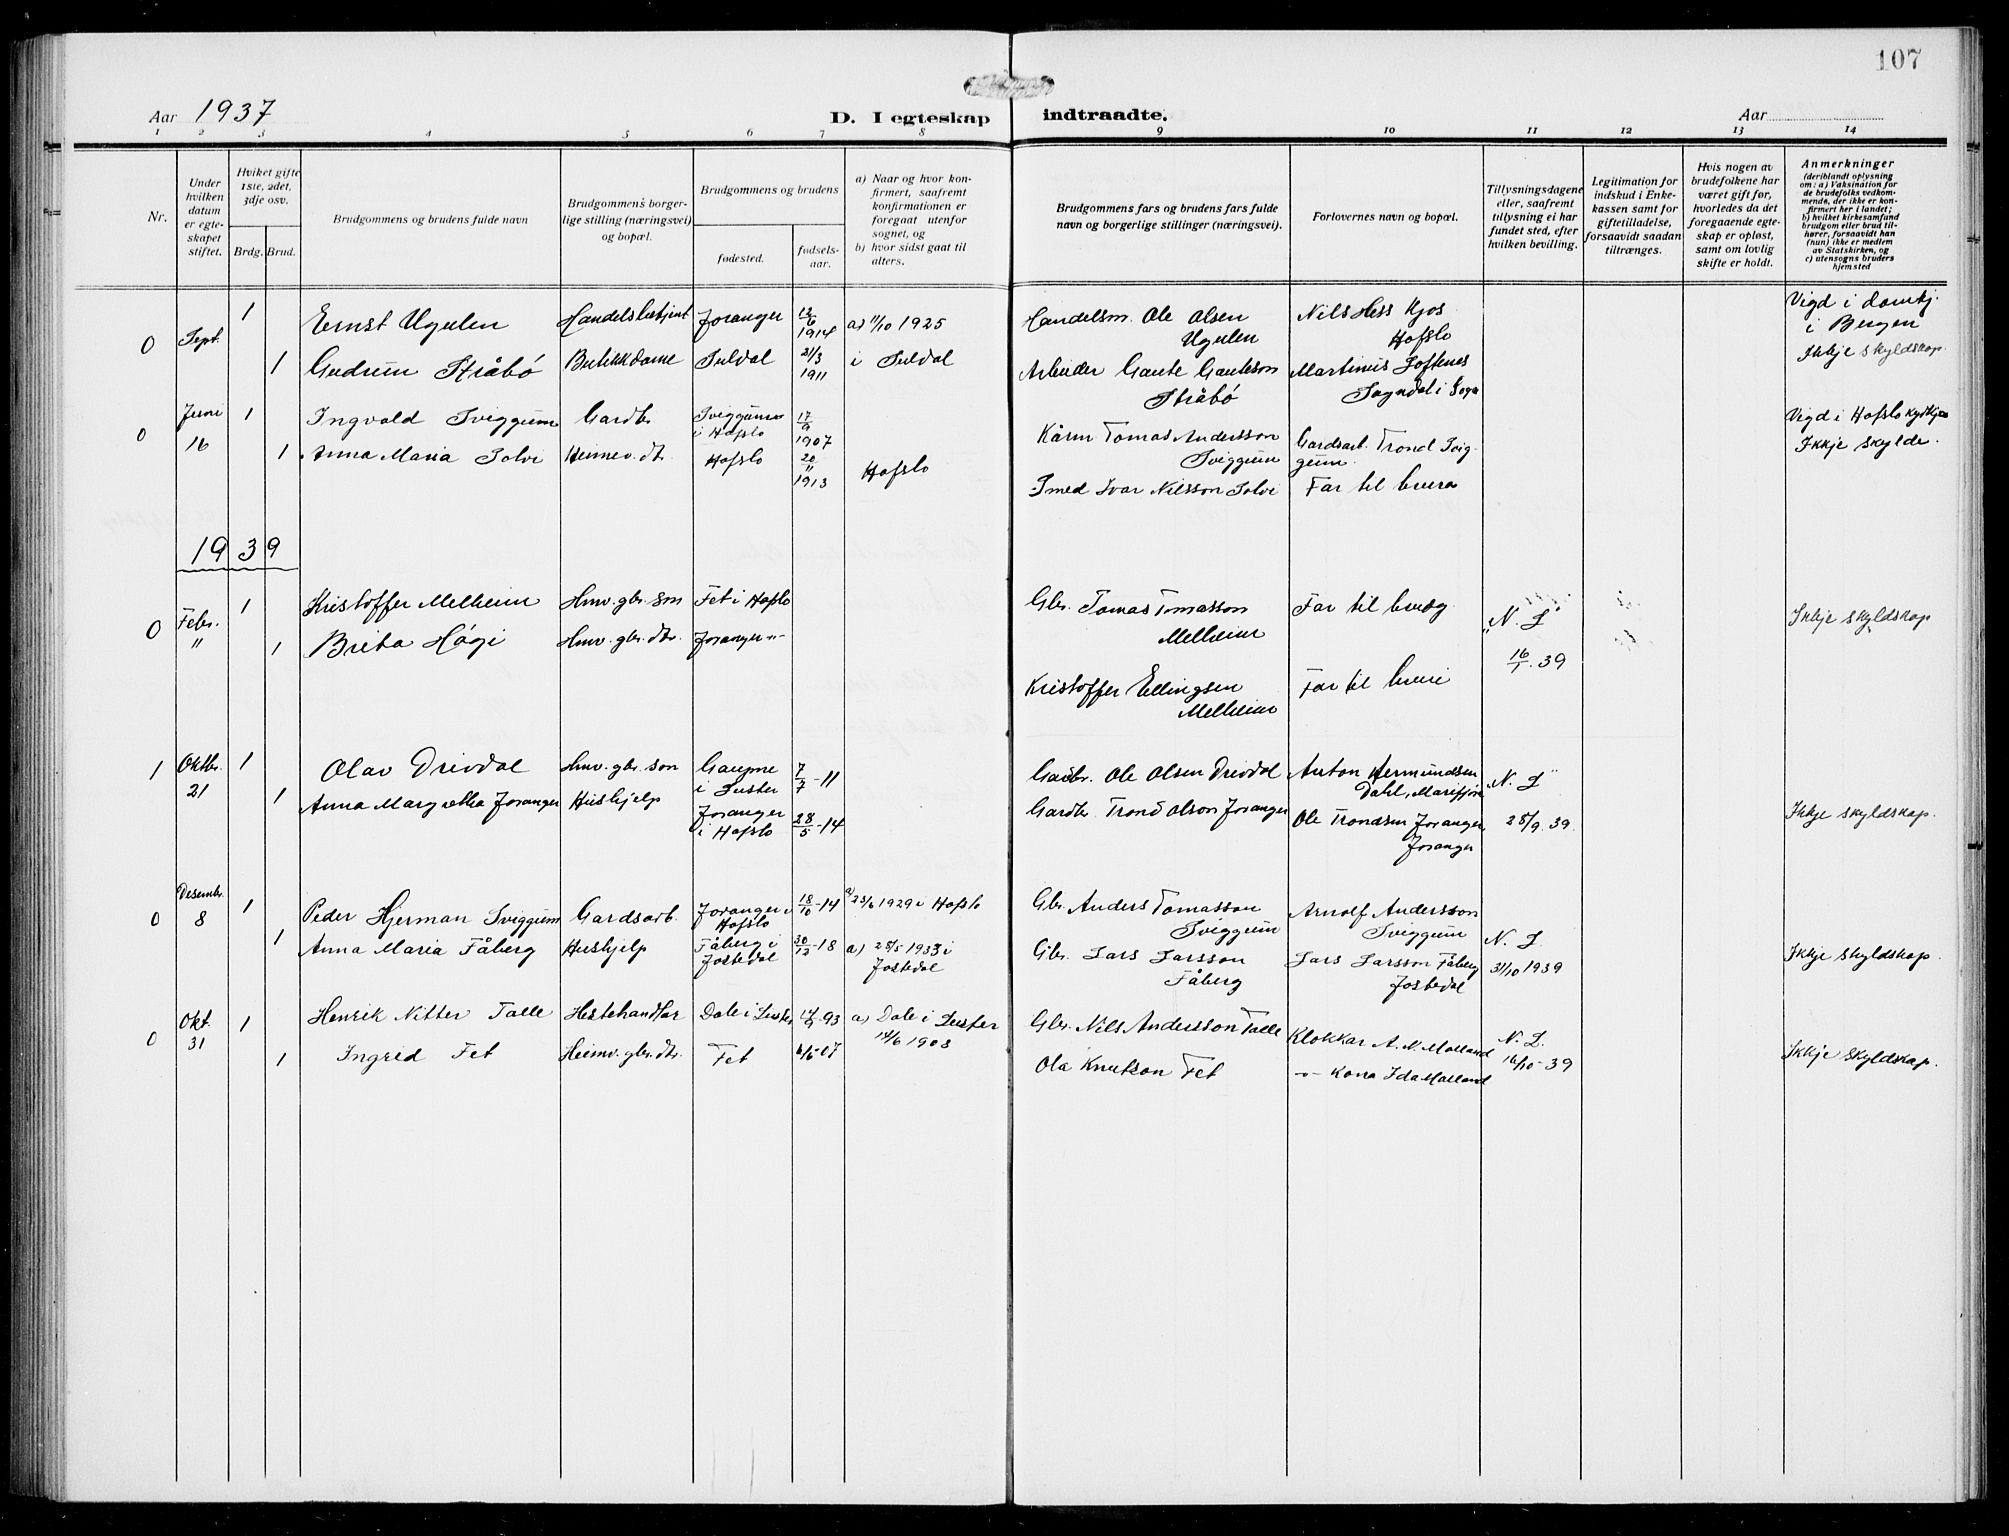 107
Aar 1937
D. I egteskap indtraadte.
Aar
1 2 3 4 5 6 7 8 9 10 11 12 13 14
Nr.
Under hvilken datum er egteskapet stiftet.
Hvilket gifte 1ste, 2det, 3dje osv.
Brdg. Brud.
Brudgommens og brudens fulde navn
Brudgommens borgerlige stilling (næringsvei) og bopæl.
Brudgommens og brudens
fødested.
fødselsaar.
a) Naar og hvor konfirmert, saafremt konfirmationen er foregaat utenfor sognet, og
b) hvor sidst gaat til alters.
Brudgommens fars og brudens fars fulde navn og borgerlige stillinger (næringsvei).
Forlovernes navn og bopæl.
Tillysningsdagene eller, saafremt tillysning ei har fundet sted, efter hvilken bevilling.
Legitimation for indskud i Enkekassen samt for giftetilladelse, forsaavidt saadan tiltrænges.
Hvis nogen av brudefolkene har været gift før, hvorledes da det foregaaende egteskap er opløst, samt om lovlig skifte er holdt.
Anmerkninger
(deriblandt oplysning om: a) Vaksination for de brudefolks vedkommende, der ikke er konfirmert her i landet;
b) hvilket kirkesamfund brudgom eller brud tilhører, forsaavidt han (hun) ikke er medlem av Statskirken, og
c) utensogns bruders hjemsted
0 Sept. 1 Ernst Ugulen Handelsbetjent Joranger 12/6 1914 a) 11/10 1925 Handelsm. Ole Olsen Ugulen Nils Hess Kjos Hafslo Vigd i domkj. i Bergen
1 Gudrun Stråbó Butikkdame Suldal 21/3 1911 i Suldal Arbeider Gaute Gauteson Stråbó Martinus Loftesnes Sogndal i Sogn Ikkje skyldskap.
0 Juni 16 1 Ingvald Sviggum Gardbr. Sviggum i Hafslo 17/9 1907 Kårm Tomas Andersson Sviggum Gardsarb. Trond Sviggum. Vigd i Hafslo
1 Anna Maria Solvi Heimev. dtr. Hafslo 20/11 1913 Hafslo Smed Ivar Nilsson Solvi Far til brura Ikkje skylde.
1939
0 Febr. " 1 Kristoffer Melheim Hmv. gbr. son Fet i Hafslo Gbr. Tomas Tomasson Melheim Far til brudg. "N. L"
1 Brita Högi Hmv. gbr. dtr. Joranger -"- Kristoffer Ellingsen Melheim Far til bruri 16/1. 39 Ikkje skyldskap
1 Oktbr. 21 1 Olav Drivdal Hmv. gbr. son Gaupne i Luster 7/7 - 11 Gardbr. Ole Olsen Drivdal Anton Hermundsen Dahl, Marifjøra N. L"
1 Anna Margretha Joranger Hushjelp Joranger i Hafslo 28/5 - 14 Gardbr. Trond Olson Joranger Ole Trondsen Joranger, Joranger 28/9. 39. Ikkje skyldskap.
0 Desembr. 8 1 Peder Hjerman Sviggum Gardsarb. Joranger i Hafslo 18/10 - 14 a) 23/6 1929 i Hafslo Gbr. Anders Tomasson Sviggum Arnolf Andersson Sviggum N. L.
1 Anna Maria Fåberg Hushjelp Fåberg i Jostedal 30/12 - 18 a) 28/5 1933 i Jostedal Gbr. Lars Larsson Fåberg Lars Larsson Fåberg Jostedal 31/10 1939 Ikkje skyldskap.
0 Okt. 31 1 Henrik Nitter Talle Hestehandlar Dale i Luster 14/9 - 93 a) Dale i Luster 14/6 1908 Gbr. Nils Andersson Talle Klokkar A. N. Molland N. L.
1 Ingrid Fet Heimv. gbr. dtr. Fet 6/6 - 07 Ola Knutson Fet -"- Kona Ida Molland 16/10 - 39 Ikkje skyldskap.